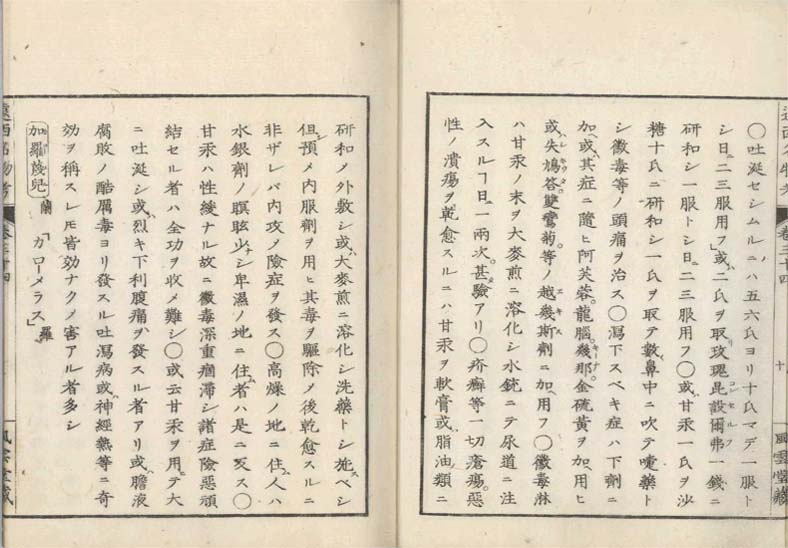 遠西名物考
卷三十四
十
風雲堂藏
〇吐涎セシムルニハ五六氏ヨリ十氏マデ一服ト
シ日ニ二三服用フ」或ハ二氏ヲ取玫瑰昆設爾弗一錢ニ
コンセルフ
研和シ一服トシ日ニ二三服用フ〇或ハ甘汞一氏ヲ沙
糖十氏ニ研和シ一氏ヲ取テ數鼻中ニ吹テ嚏藥ト
シ黴毒等ノ頭痛ヲ治ス〇瀉下スベキ症ハ下劑ニ
加ヘ或ハ其症ニ隨ヒ阿芙蓉。龍腦。幾那。金硫黄ヲ加ヘ用ヒ
キーナ
或ハ失鳩答。雙鸞菊。等ノ越幾斯劑ニ加ヘ用フ〇黴毒淋
エキス
ハ甘汞ノ末ヲ大麥煎ニ溶化シ水銃ニテ尿道ニ注
入スルヿ日ニ一兩次。甚驗アリ〇疥癬等一切瘡瘍。惡
性ノ潰瘍ヲ乾愈スルニハ甘汞ヲ軟膏或ハ脂油類ニ
研和メ外敷シ或ハ大麥煎ニ溶化シ洗藥トシ施スベシ
但シ預メ内服劑ヲ用ヒ其毒ヲ驅除メ後乾愈スルニ
非ザレバ内攻ノ險症ヲ發ス〇高燥ノ地ニ住ム人ハ
水銀劑ノ瞑眩少ナシ卑濕ノ地ニ住ム者ハ是ニ反ス〇
甘汞ハ性緩ナル故ニ黴毒深重痼滯シ諸症險惡頑
結セル者ハ全功ヲ收メ難シ〇或云甘汞ヲ用テ大
ニ吐涎シ或ハ烈キ下利腹痛ヲ發スル者アリ或ハ膽液
腐敗ノ酷厲毒ヨリ發スル吐瀉病或ハ神經熱等ニ奇
効ヲ稱スレモ皆効ナクメ害アル者多シ
加羅茂兒 蘭 「カローメラス」羅
遠西名物考
卷三十四
風雲堂藏